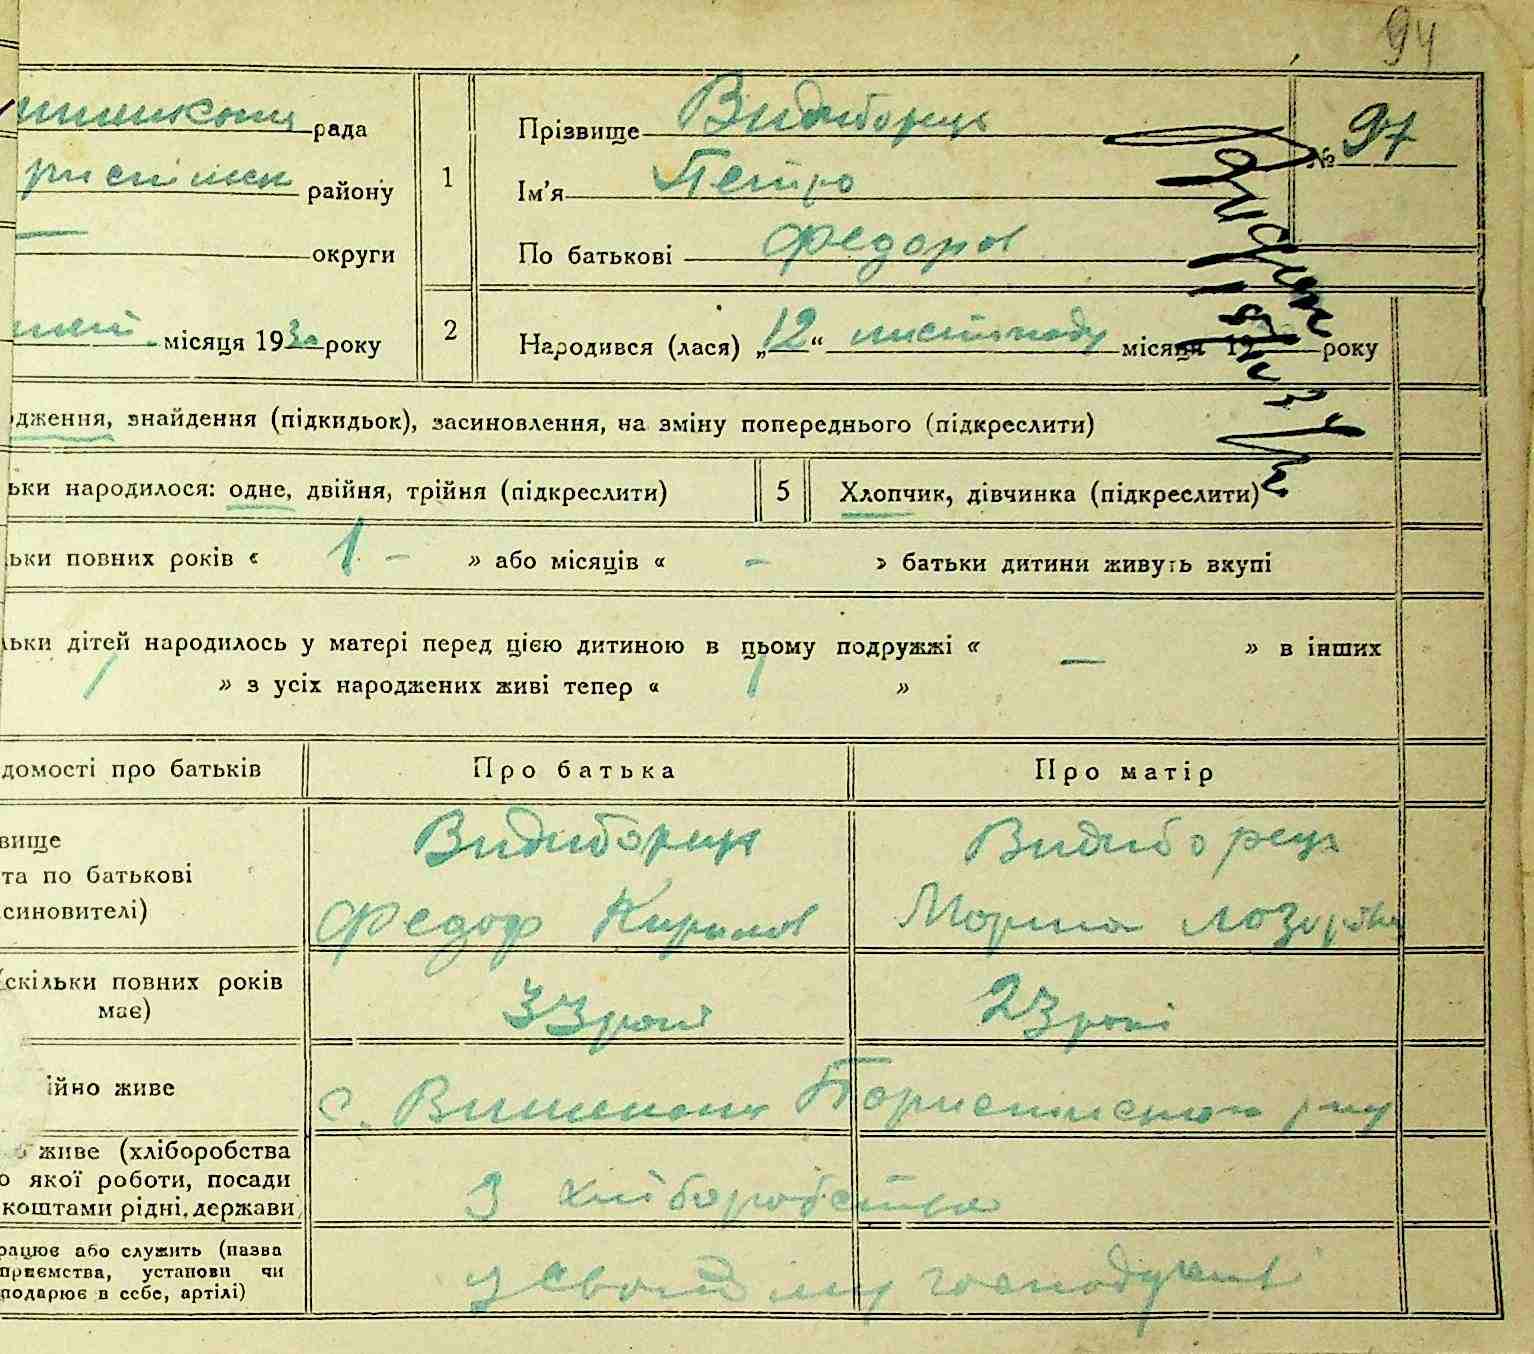 94
рада
району
округи
місяця 1930 року
1
Прізвище Видиборець
Ім'я Петро
По батькові Федоров
№ 97
2
Народився (лася) „12“ листопаду місяця 19 року
дження, знайдення (підкидьок), засиновлення, на зміну попереднього (підкреслити)
ьки народилося: одне, двійня, трійня (підкреслити)
5 Хлопчик, дівчинка (підкреслити)
ьки повних років « 1 - » або місяців « - » батьки дитини живуть вкупі
ьки дітей народилось у матері перед цією дитиною в цьому подружжі « — » в інших
1 » з усіх народжених живі тепер « 1 »
домості про батьків
Про батька
Про матір
вище
та по батькові
синовителі)
Видиборець
Федор Кирилов
Видиборець
Морина Лазорівна
скільки повних років
має)
33 роки
23 рокі
ійно живе
с. Вишеньки Бориспільського р-ну
живе (хліборобства
о якої роботи, посади
коштами рідні, держави
З хліборобства
рацює або служить (назва
приємства, установи чи
подарює в себе, артілі)
у своєму господарстві